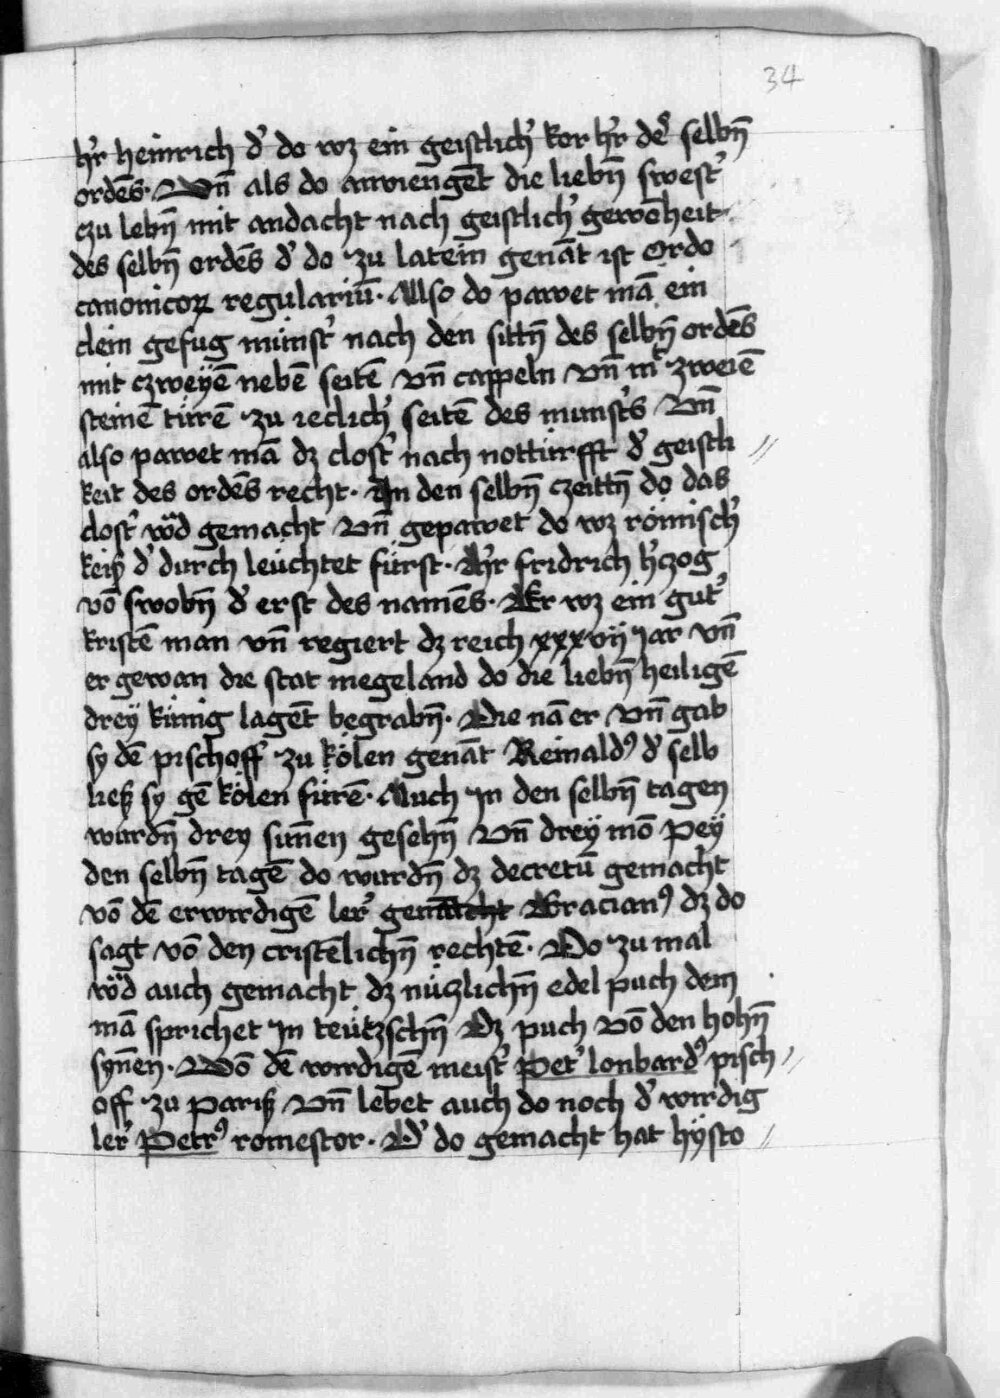 34
hr̄ heinrich d' do wz ein geistlich' kor hr̄ des selbn̄
ordēs. Vn̄ als do anviengēt die liebn̄ swest'
czu lebn̄ mit andacht nach geistlich' gewōheit
des selbn̄ ordēs d' do zu latein genāt ist Ordo
canonicoꝝ regulariū. Also do pawet mā ein
clein gefug münst' nach den sittn̄ des selbn̄ ordēs
mit czweyē nebē seitē vn̄ cappeln vn̄ mit zweiē
steinē türē zu ieclich' seitē des munst's Vn̄
also pawet mā dz clost' nach notturfft d' geistli //
keit des ordēs recht. In den selbn̄ czeittn̄ do das
clost' wd gemacht Vn̄ gepawet do wz römisch'
keiß' d' durch leuchtet fürst. Hr̄ fridrich h'czog
vō swobn̄ d' erst des namēs. Er wz ein gut'
kristē man vn̄ regiert dz reich xxxvij jar vn̄
er gewan die stat megeland do die liebn̄ heiligē
dreÿ künig lagēt begrabn̄. Die nā er vn̄ gab
sy dē pischoff zu kölen genāt Reinaldꝰ d' selb
ließ sy gē kölen fürē. Auch in den selbn̄ tagen
wurdn̄ drey sunen gesehn̄ Vn̄ dreÿ mō peÿ
den selbn̄ tagē do wurdn̄ dz decretū gemacht
vō dē erwirdigē ler' Gracianꝰ dz do
sagt vō den cristēlichn̄ rechtē. Do zu mal
wd auch gemacht dz nüczlichn̄ edel puch dem
mā sprichet in teützschn̄ Dz puch vō den hohn̄
synen. Vō dē wirdigē meist' Pet' lonbardꝰ pisch //
off zu pariß Vn̄ lebet auch do noch d' wirdig
ler' Petrꝰ comestor. D' do gemacht hat hÿsto //